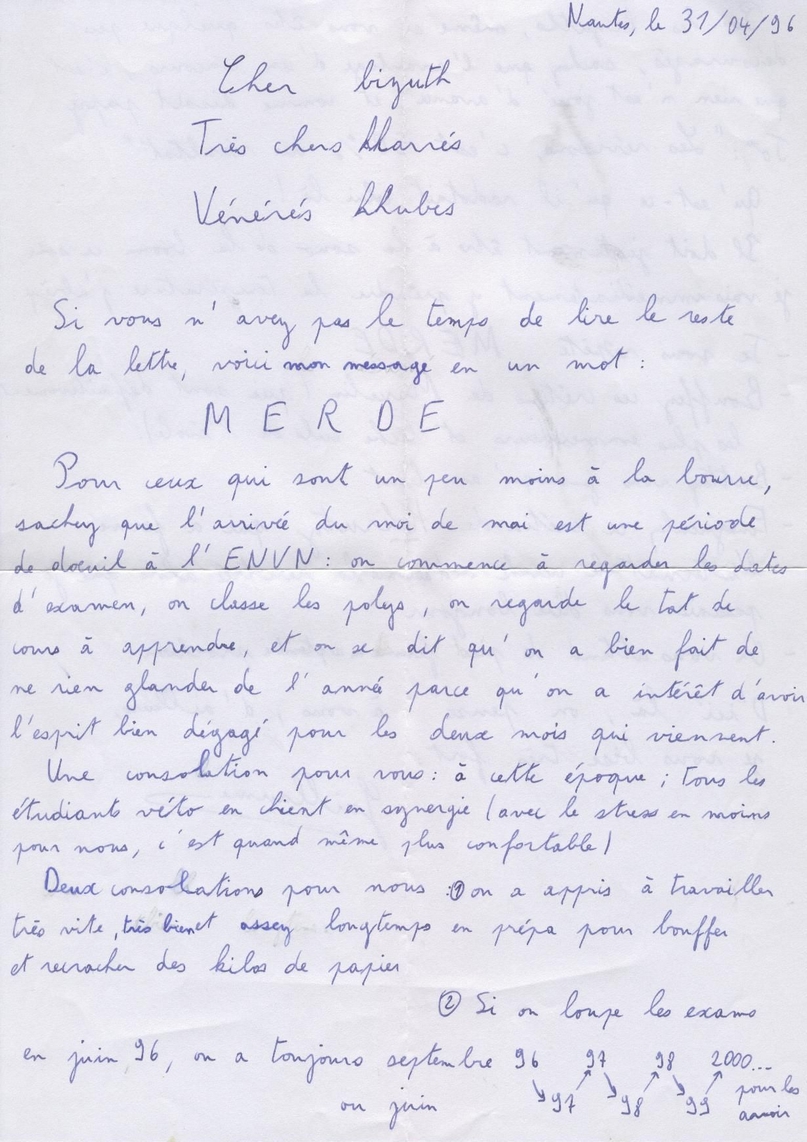 Nantes, le 31/04/96
Cher bizuth
Très chers kkarrés
Vénérés kkubes
Si vous n'avez pas le temps de lire le reste
de la lettre, voici mon message en un mot :
MERDE
Pour ceux qui sont un peu moins à la bourre,
sachez que l'arrivée du moi de mai est une période
de docuil à l'ENVN : on commence à regarder les dates
d'examen, on classe les polys, on regarde le tat de
cours à apprendre, et on se dit qu'on a bien fait de
ne rien glander de l'anné parce qu'on a intérêt d'avoir
l'esprit bien dégagé pour les deux mois qui viennent.
Une consolation pour vous : à cette époque ; tous les
étudiants véto en chient en synergie (avec le stress en moins
pour nous, c'est quand même plus confortable)
Deux consolations pour nous : ① on a appris à travailler
très vite, très bien et assez longtemps en prépa pour bouffer
et recracher des kilos de papier
② Si on loupe les exams
en juin 96, on a toujours septembre 96 97 98 2000...
ou juin 97 98 99 pour les